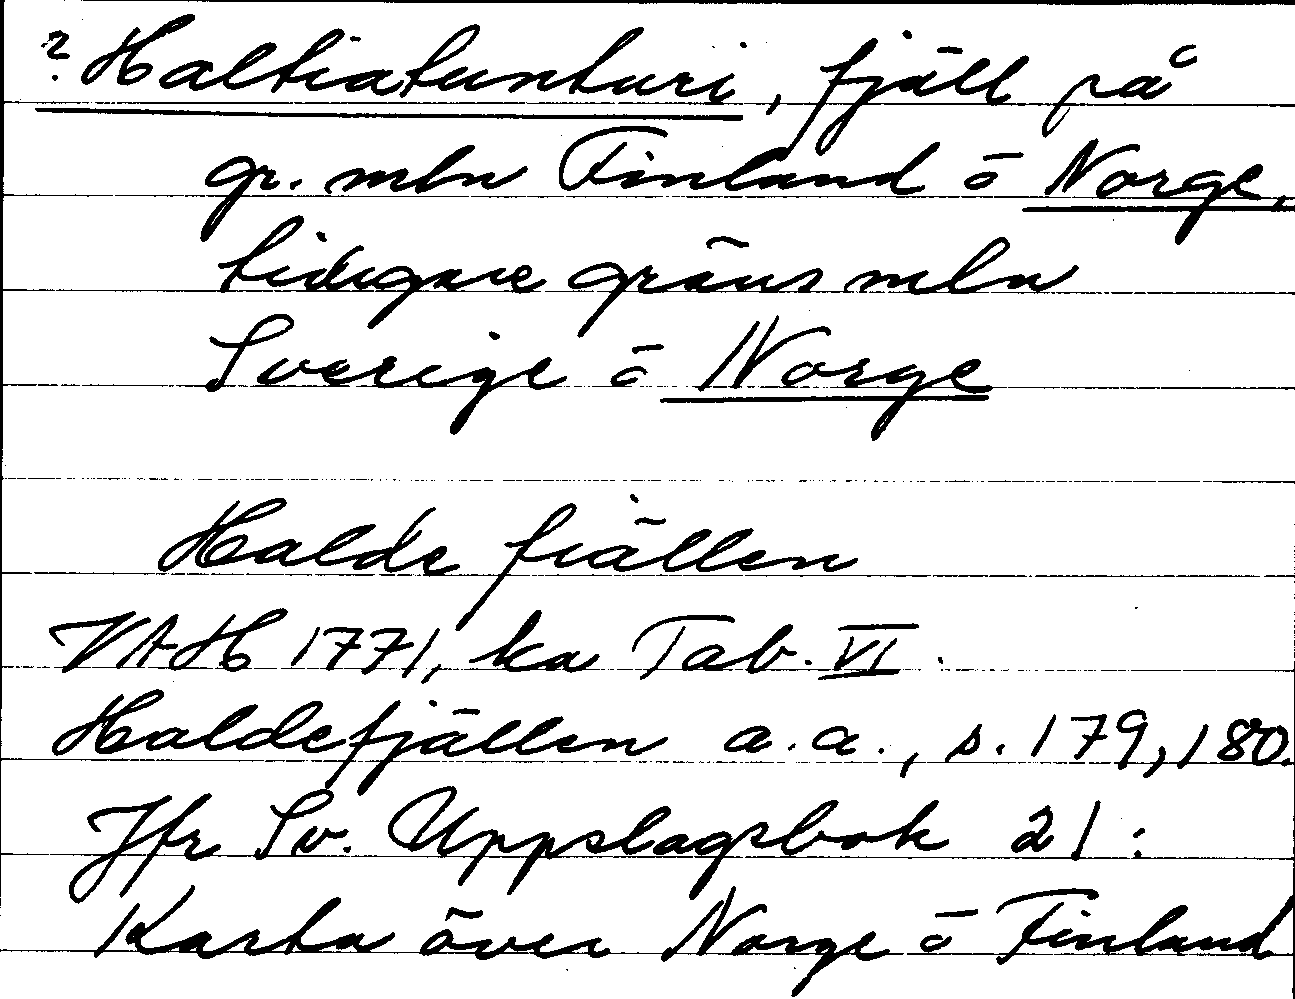 ? Haltiatunturi, fjäll på
gr. mln Finland o Norge,
tidigare gräns mln
Sverige o Norge
Halde fiällen
VAH 1771, ka Tab. VI.
Haldefjällen a.a., s. 179, 180.
Jfr Sv. Uppslagsbok 21:
Karta över Norge o Finland